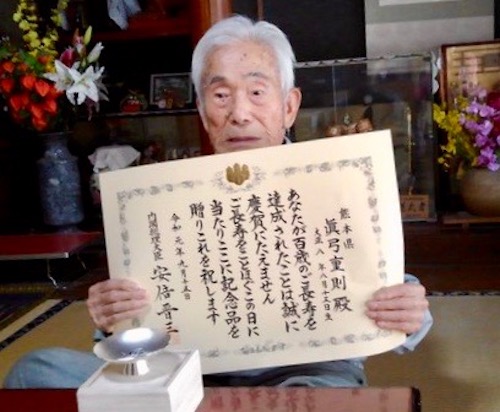 熊本県
眞弓重則殿
大正八年八月十三日生
あなたが百歳のご長寿を
達成されたことは誠に
慶賀にたえません
ご長寿をことほぐこの日に
当たりここに記念品を
贈りこれを祝します
令和元年九月十五日
内閣総理大臣 安倍晋三